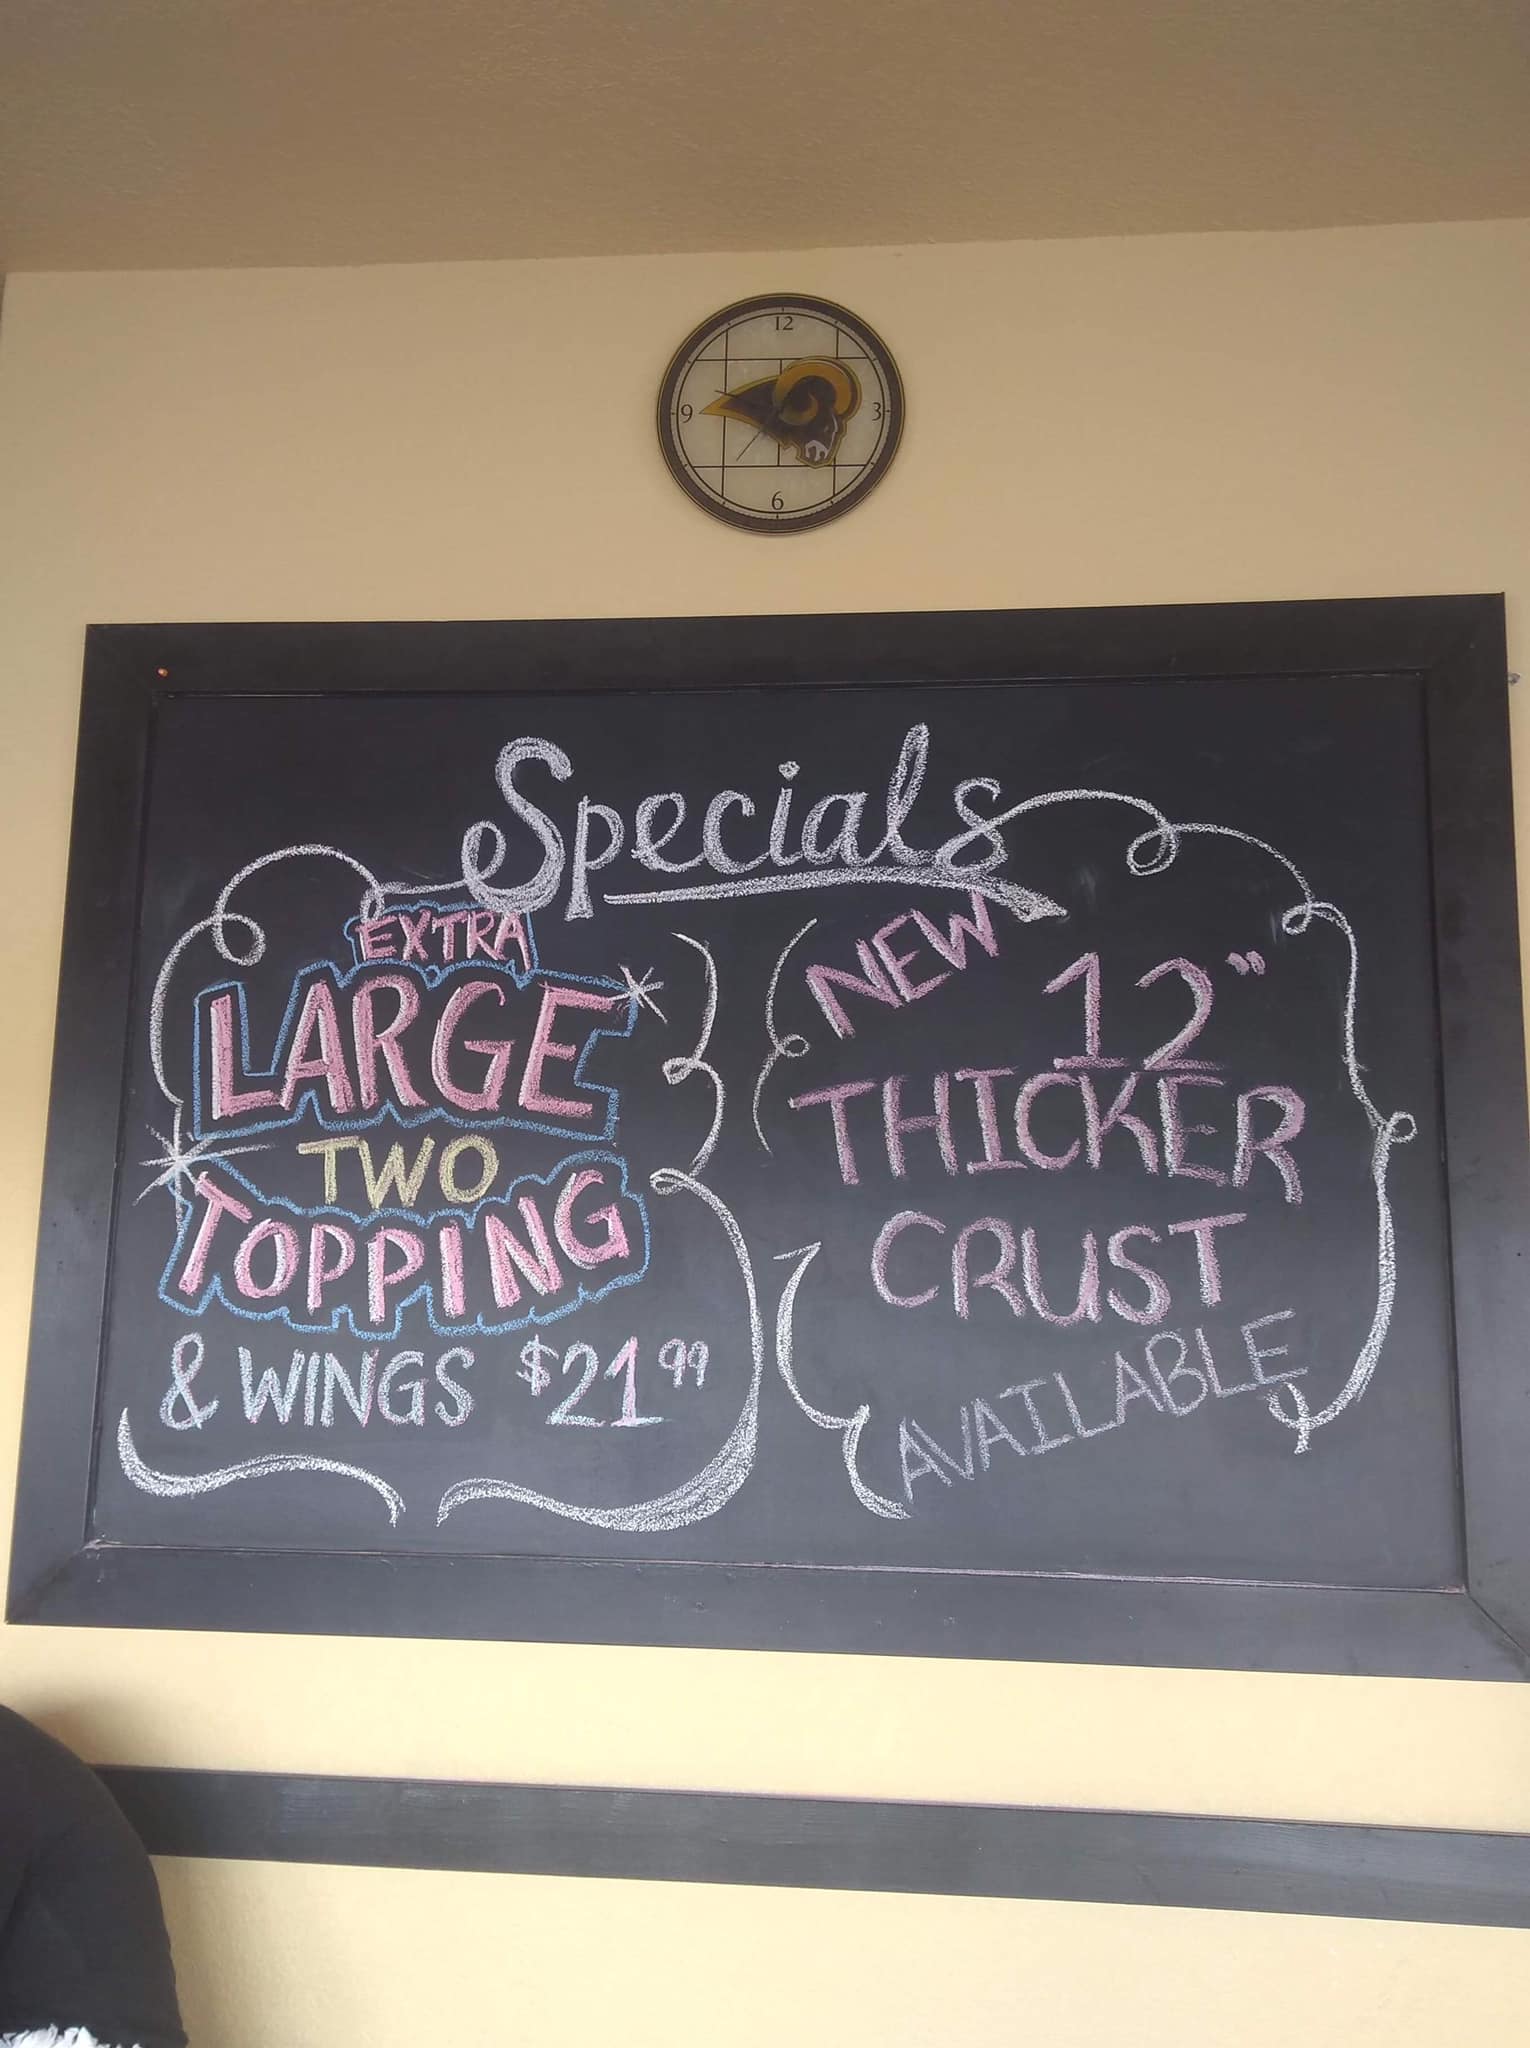 12
9
3
6
Specials
EXTRA
LARGE
TWO
TOPPING
& WINGS $21 99
NEW
12"
THICKER
CRUST
AVAILABLE